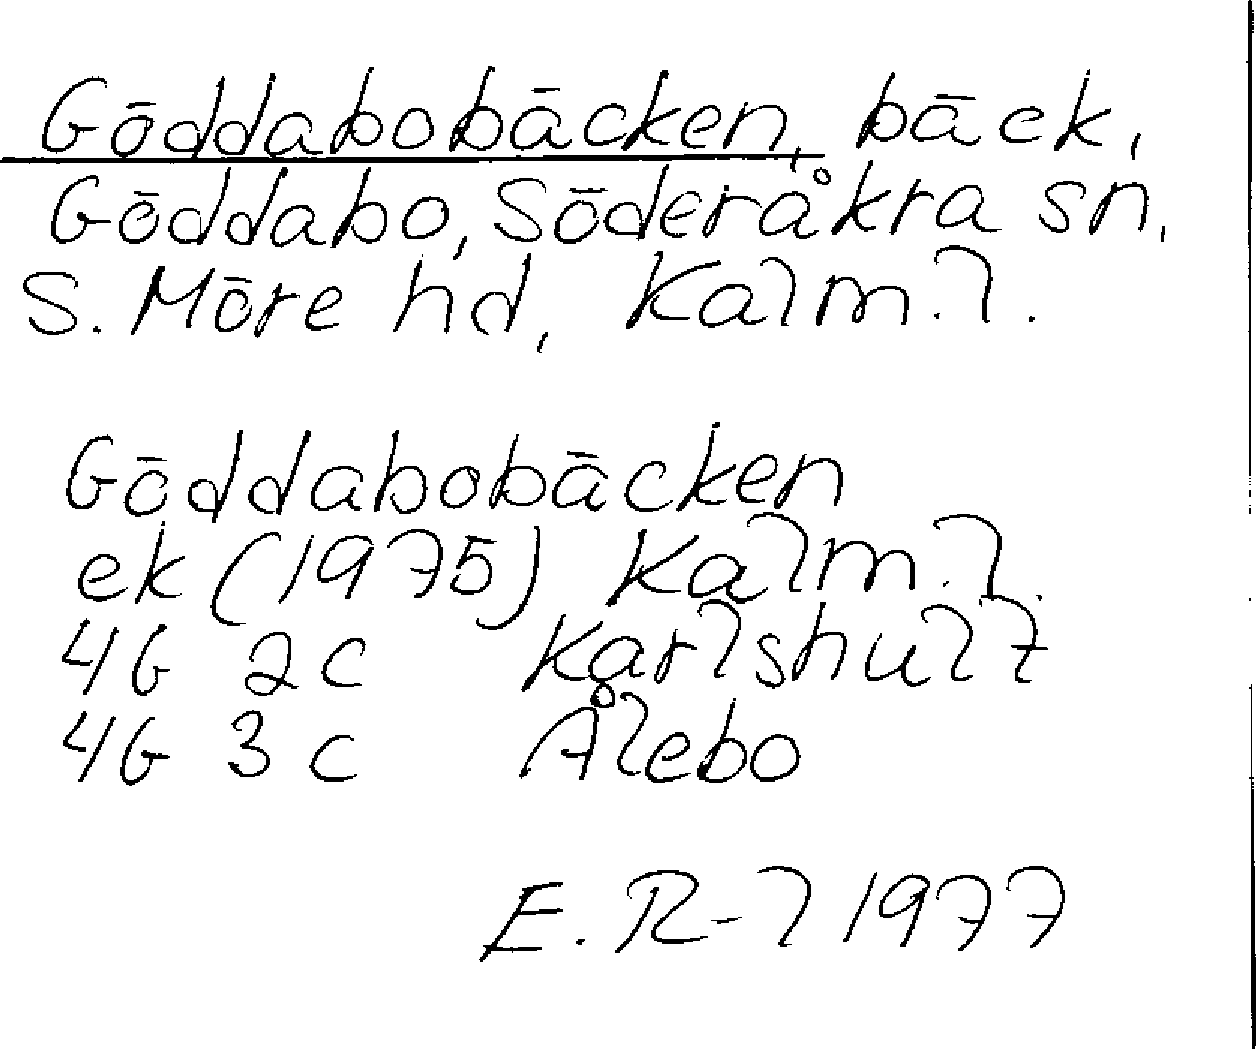 Göddabobäcken, bäck,
Göddabo, Söderåkra sn,
S. Möre hd, Kalm. l.
Göddabobäcken
ek (1975) Kalm. l.
4G 2c Karlshult
4G 3c Ålebo
E. R-l 1977